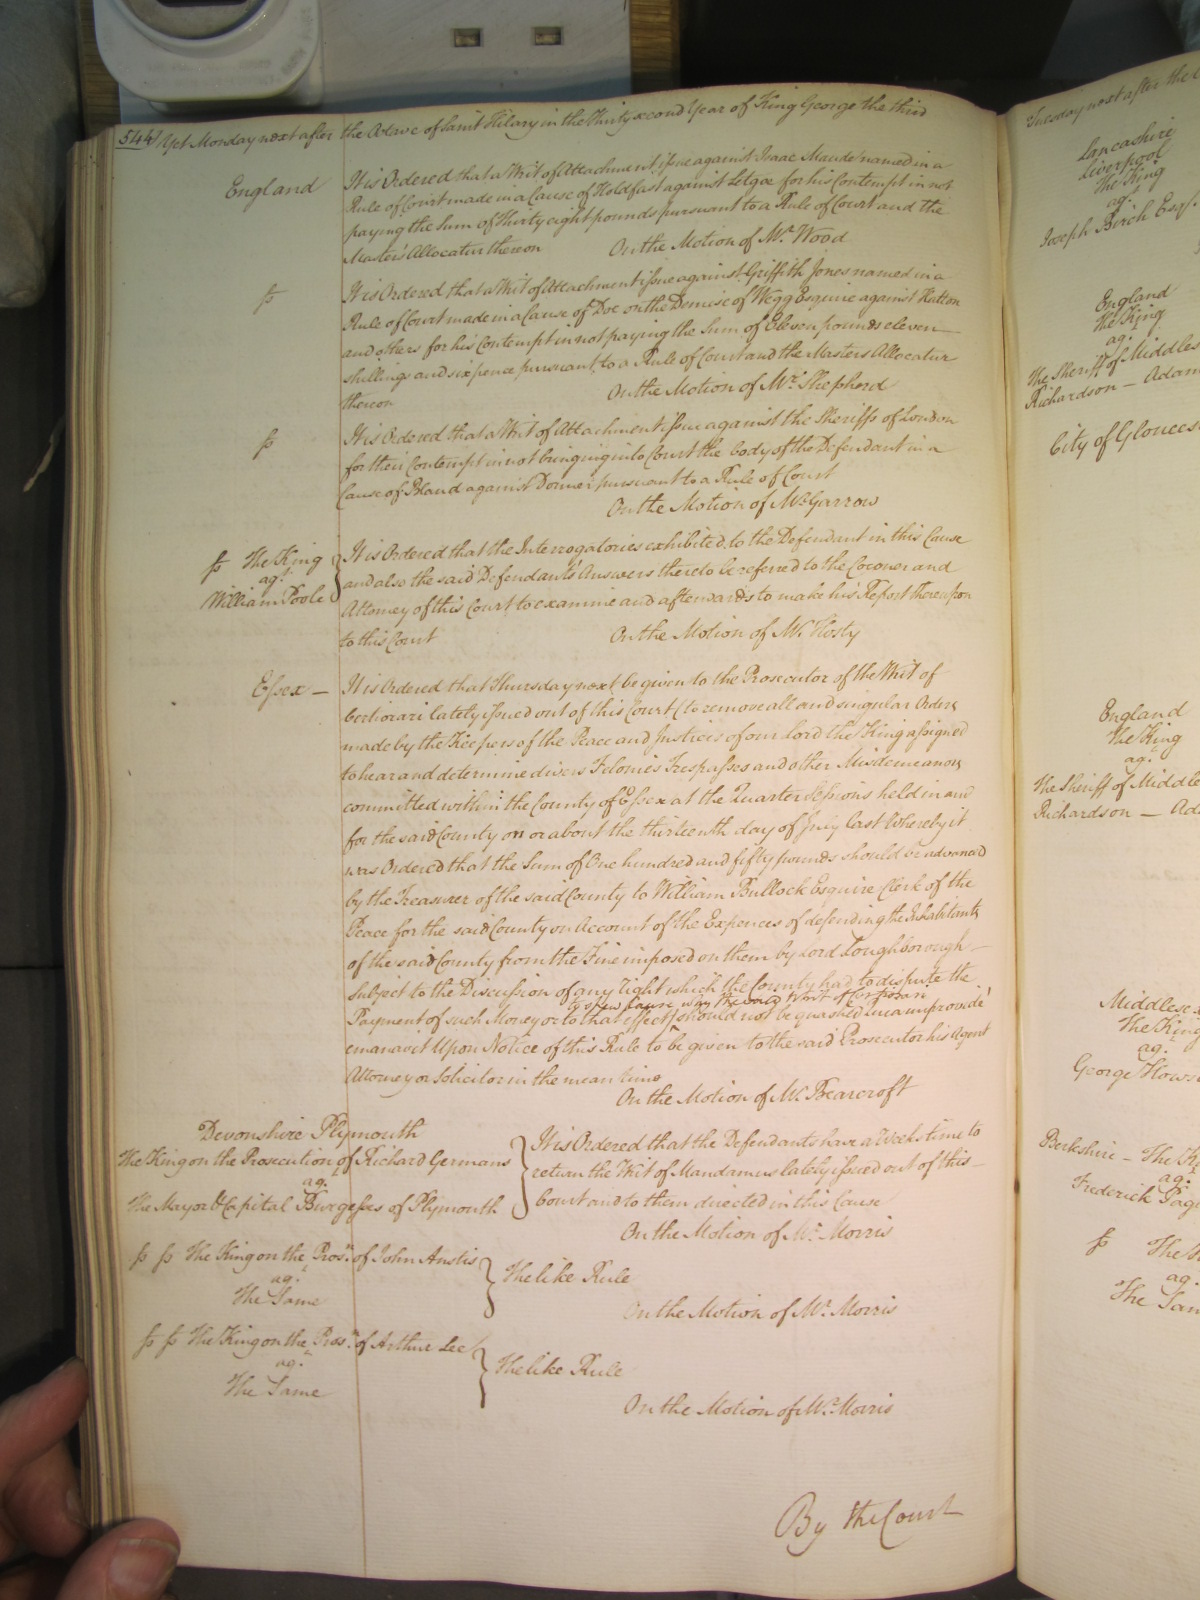 544 Yet Monday next after the Octave of Saint Hilary in the Thirty second Year of King George the third
England It is Ordered that a Writ of Attachment issue against Isaac Maude named in a
Rule of Court made in a Cause of Holdfast against Letgoe for his Contempt in not
paying the Sum of Thirty eight pounds pursuant to a Rule of Court and the
Master's Allocatur thereon On the Motion of Mr. Wood
ss It is Ordered that a Writ of Attachment issue against Griffith Jones named in a
Rule of Court made in a Cause of Doe on the Demise of Wegg Esquire against Hatton
and others for his Contempt in not paying the Sum of Eleven pounds eleven
shillings and sixpence pursuant to a Rule of Court and the Masters Allocatur
thereon On the Motion of Mr. Shepherd
ss It is Ordered that a Writ of Attachment issue against the Sheriffs of London
for their Contempt in not bringing into Court the body of the Defendant in a
Cause of Bland against pursuant to a Rule of Court
On the Motion of Mr. Garrow
ss The King
agt.
William Poole
It is Ordered that the Interrogatories exhibited to the Defendant in this Cause
and also the said Defendant's Answers thereto be referred to the Coroner and
Attorney of this Court to examine and afterwards to make his Report thereupon
to this Court On the Motion of Mr. Hosty
Essex — It is Ordered that Thursday next be given to the Prosecutor of the Writ of
Certiorari lately issued out of this Court (to remove all and singular Orders
made by the Keepers of the Peace and Justices of our Lord the King assigned
to hear and determine divers Felonies Trespasses and other Misdemeanors
committed within the County of Essex at the Quarter Sessions held in and
for the said County on or about the thirteenth day of July last Whereby it
was Ordered that the Sum of One hundred and fifty pounds should be advanced
by the Treasurer of the said County to William Bullock Esquire Clerk of the
Peace for the said County on Account of the Expences of defending the Inhabitants
of the said County from the Fine imposed on them by Lord Loughborough —
Subject to the Discussion of any right which the County had to dispute the
to shew Cause why the said Writ of Certiorari
Payment of such Money or to that effect) should not be quashed quia improvide
emanavit Upon Notice of this Rule to be given to the said Prosecutor his Agent
Attorney or Solicitor in the mean time
On the Motion of Mr. Bearcroft
Devonshire Plymouth
The King on the Prosecution of Richard Germans
ag.
The Mayor & Capital Burgesses of Plymouth
It is Ordered that the Defendants have a Weeks time to
return the Writ of Mandamus lately issued out of this —
Court and to them directed in this Cause
On the Motion of Mr. Morris
ss ss The King on the Prosn. of John Anstis
ag.
The Same
The like Rule
On the Motion of Mr. Morris
ss ss The King on the Prosn. of Arthur Lee
ag.
The Same
The like Rule
On the Motion of Mr. Morris
By the Court
Tuesday next after the
Lancashire
Liverpool
The King
ag.
Joseph Birch Esqr.
England
The King
ag.
The Sheriff of Middles
Richardson — Adam
City of Glouces
England
The King
ag.
The Sheriff of Middle
Richardson — Ad
Middlesex
The King
ag.
George Hows
Berkshire — The K
ag.
Frederick Pag
ss The
ag.
The Sam